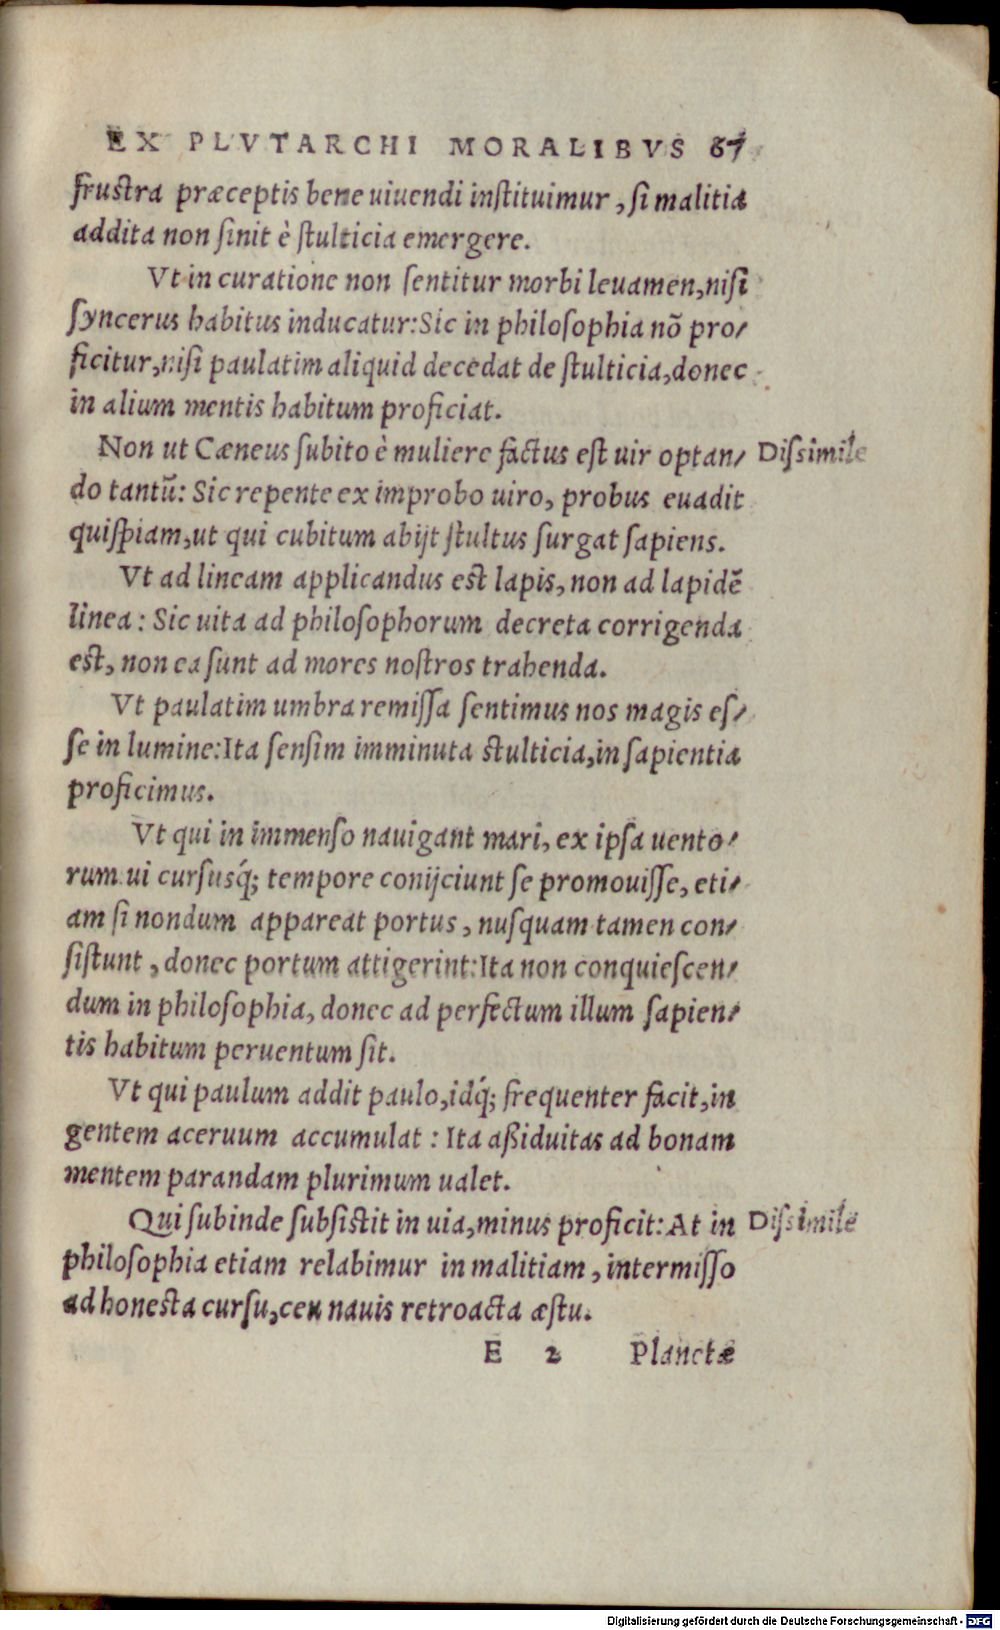 EX PLVTARCHI MORALIBVS 67
frustra præceptis bene uiuendi instituimur, si malitia
addita non sinit è stulticia emergere.
Vt in curatione non sentitur morbi leuamen, nisi
syncerus habitus inducatur: Sic in philosophia nõ pro-
ficitur, nisi paulatim aliquid decedat de stulticia, donec
in alium mentis habitum proficiat.
Non ut Cæneus subito è muliere factus est uir optan- Dissimile
do tantũ: Sic repente ex improbo uiro, probus euadit
quispiam, ut qui cubitum abijt stultus surgat sapiens.
Vt ad lineam applicandus est lapis, non ad lapidẽ
linea: Sic uita ad philosophorum decreta corrigenda
est, non ea sunt ad mores nostros trahenda.
Vt paulatim umbra remissa sentimus nos magis es-
se in lumine: Ita sensim imminuta stulticia, in sapientia
proficimus.
Vt qui in immenso nauigant mari, ex ipsa uento-
rum ui cursusq́; tempore conijciunt se promouisse, eti-
am si nondum appareat portus, nusquam tamen con-
sistunt, donec portum attigerint: Ita non conquiescen-
dum in philosophia, donec ad perfectum illum sapien-
tis habitum peruentum sit.
Vt qui paulum addit paulo, idq́; frequenter facit, in
gentem aceruum accumulat: Ita aßiduitas ad bonam
mentem parandam plurimum ualet.
Qui subinde subsistit in uia, minus proficit: At in Dissimile
philosophia etiam relabimur in malitiam, intermisso
ad honesta cursu, ceu nauis retroacta æstu.
E 2 Planctæ
Digitalisierung gefördert durch die Deutsche Forschungsgemeinschaft - DFG